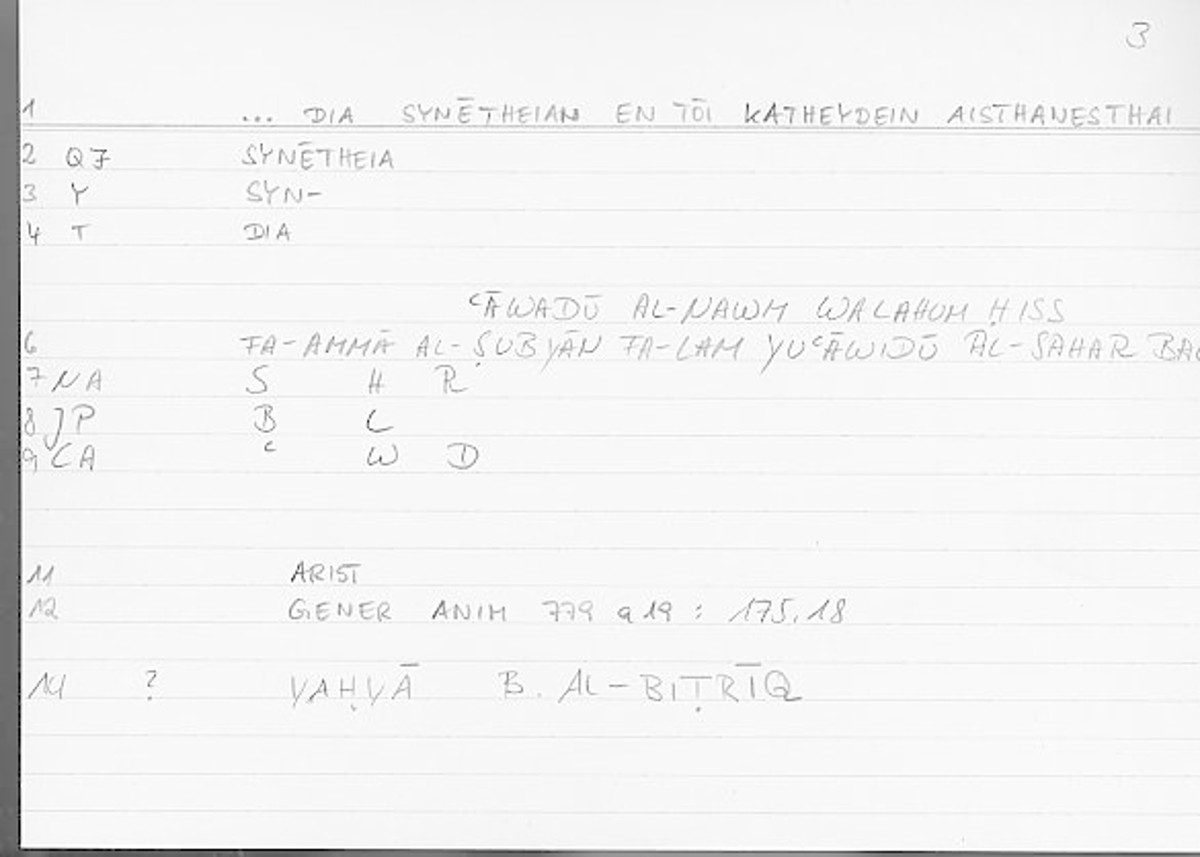 3
1 ... DIA SYNĒTHEIAN EN TŌI KATHEYDEIN AISTHANESTHAI
2 Q7 SYNĒTHEIA
3 Y SYN-
4 T DIA
ʿĀWADŪ AL-NAWM WALAHUM ḤISS
6 FA-AMMĀ AL-ṢUBYĀN FA-LAM YUʿĀWIDŪ AL-SAHAR
7 NA S H R
8 JP B L
9 CA ʿ W D
11 ARIST
12 GENER ANIM 779 a 19 : 175,18
14 ? YAḤYĀ B. AL-BIṬRĪQ